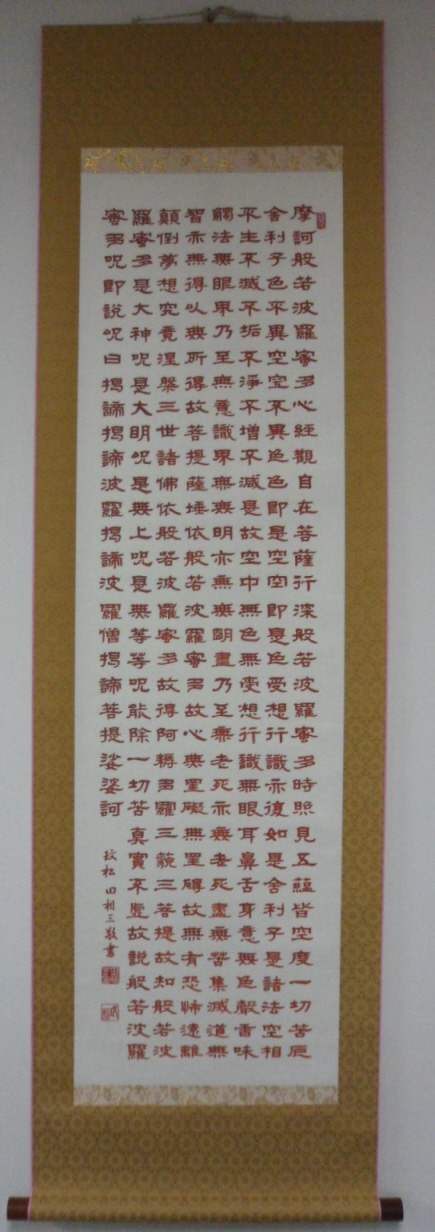 摩訶般若波羅蜜多心經觀自在菩薩行深般若波羅蜜多時照見五蘊皆空度一切苦厄
舍利子色不異空空不異色色即是空空即是色受想行識亦復如是舍利子是諸法空相
不生不滅不垢不淨不增不減是故空中無色無受想行識無眼耳鼻舌身意無色聲香味
觸法無眼界乃至無意識界無無明亦無無明盡乃至無老死亦無老死盡無苦集滅道無
智亦無得以無所得故菩提薩埵依般若波羅蜜多故心無罣礙無罣礙故無有恐怖遠離
顛倒夢想究竟涅槃三世諸佛依般若波羅蜜多故得阿耨多羅三藐三菩提故知般若波
羅蜜多是大神呪是大明呪是無上呪是無等等呪能除一切苦眞實不虛故說般若波羅
蜜多呪即說呪曰揭諦揭諦波羅揭諦波羅僧揭諦菩提娑婆訶
玟松 田相三敬書